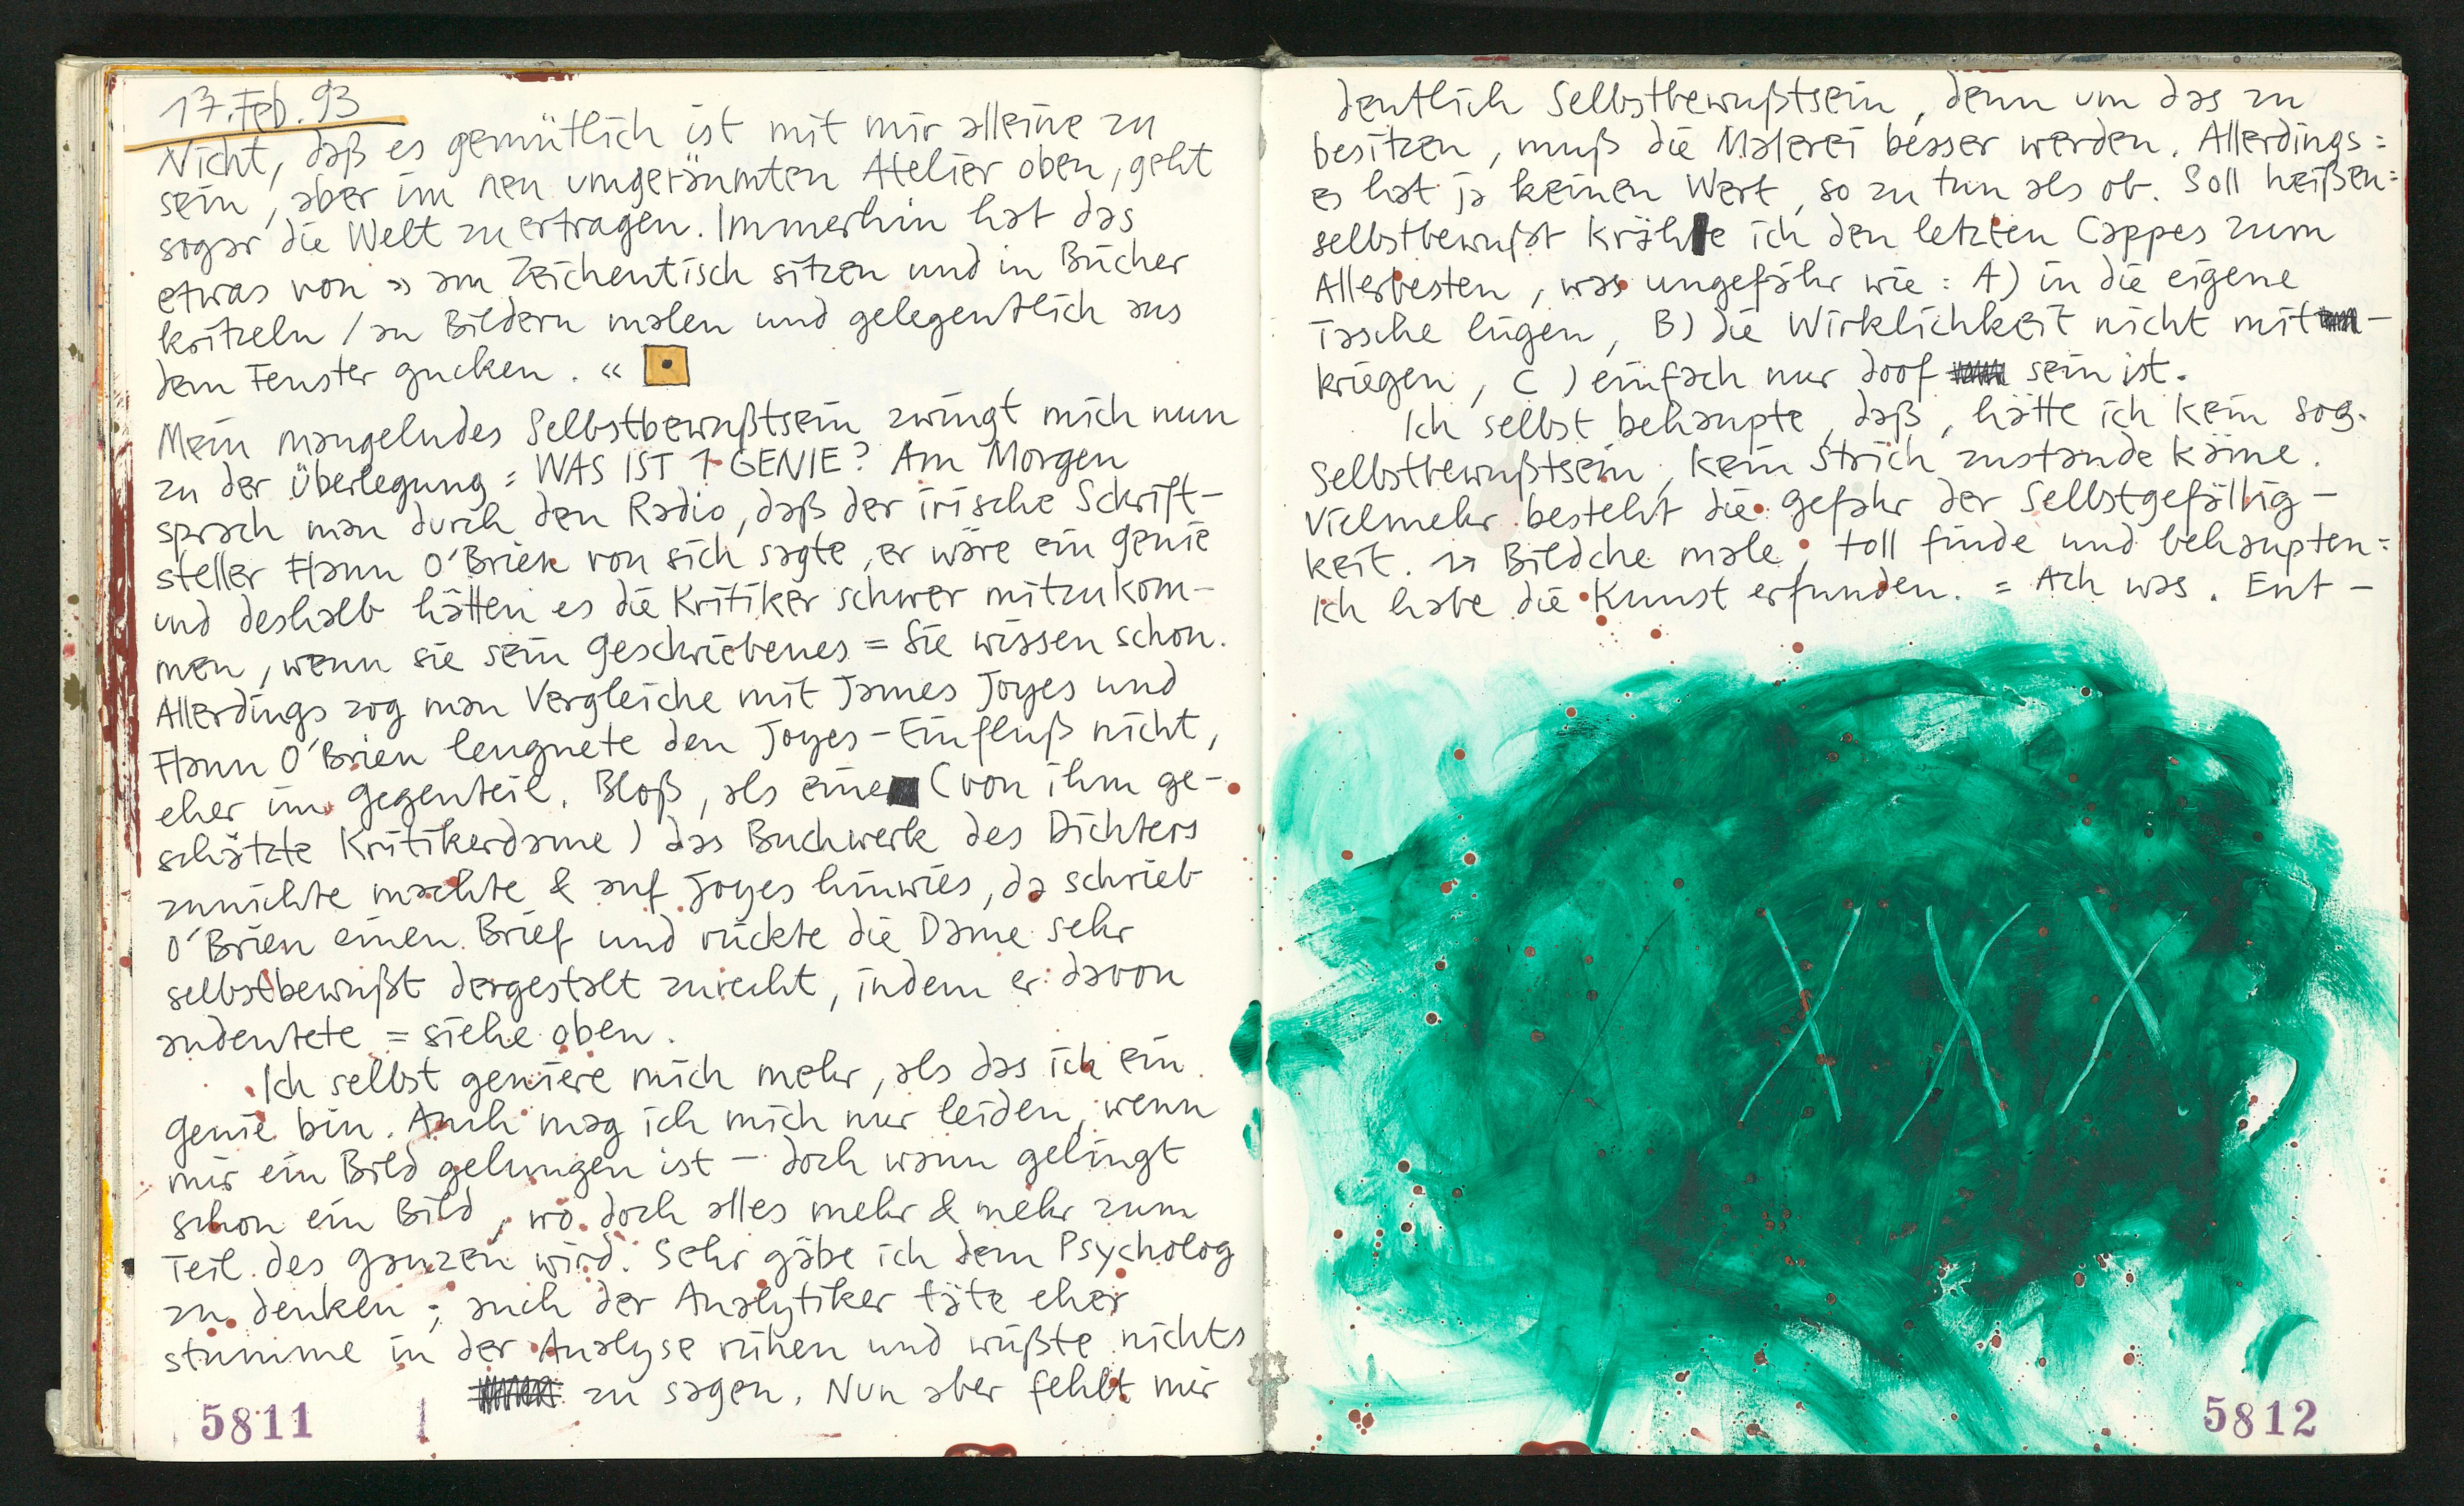 17. Feb. 93
Nicht, daß es gemütlich ist mit mir alleine zu
sein, aber im neu umgeräumten Atelier oben, geht
sogar die Welt zu ertragen. Immerhin hat das
etwas von » am Zeichentisch sitzen und in Bücher
kritzeln / an Bildern malen und gelegentlich aus
dem Fenster gucken. «
Mein mangelndes Selbstbewußtsein zwingt mich nun
zu der Überlegung = WAS IST 1 GENIE? Am Morgen
sprach man durch den Radio, daß der irische Schrift-
steller Flann O'Brien von sich sagte, er wäre ein Genie
und deshalb hätten es die Kritiker schwer mitzukom-
men, wenn sie sein Geschriebenes = Sie wissen schon.
Allerdings zog man Vergleiche mit James Joyes und
Flann O'Brien leugnete den Joyes-Einfluß nicht,
eher im Gegenteil. Bloß, als eine (von ihm ge-
schätzte Kritikerdame) das Buchwerk des Dichters
zunichte machte & auf Joyes hinwies, da schrieb
O'Brien einen Brief und rückte die Dame sehr
selbstbewußt dergestalt zurecht, indem er davon
andeutete = siehe oben.
Ich selbst geniere mich mehr, als das ich ein
Genie bin. Auch mag ich mich nur leiden, wenn
mir ein Bild gelungen ist – doch wann gelingt
schon ein Bild, wo doch alles mehr & mehr zum
Teil des ganzen wird. Sehr gäbe ich dem Psycholog
zu denken; auch der Analytiker täte eher
stumme in der Analyse ruhen und wüßte nichts
zu sagen. Nun aber fehlt mir
5811
deutlich Selbstbewußtsein, denn um das zu
besitzen, muß die Malerei besser werden. Allerdings=
es hat ja keinen Wert, so zu tun als ob. Soll heißen=
selbstbewußt krähe ich den letzten Cappes zum
Allerbesten, was ungefähr wie: A) in die eigene
Tasche lügen, B) die Wirklichkeit nicht mit-
kriegen, C) einfach nur doof sein ist.
Ich selbst behaupte, daß, hätte ich kein sog.
Selbstbewußtsein, kein Strich zustande käme.
Vielmehr besteht die Gefahr der Selbstgefällig-
keit. Bildche male, toll finde und behaupten=
Ich habe die Kunst erfunden. = Ach was. Ent-
X X X
5812